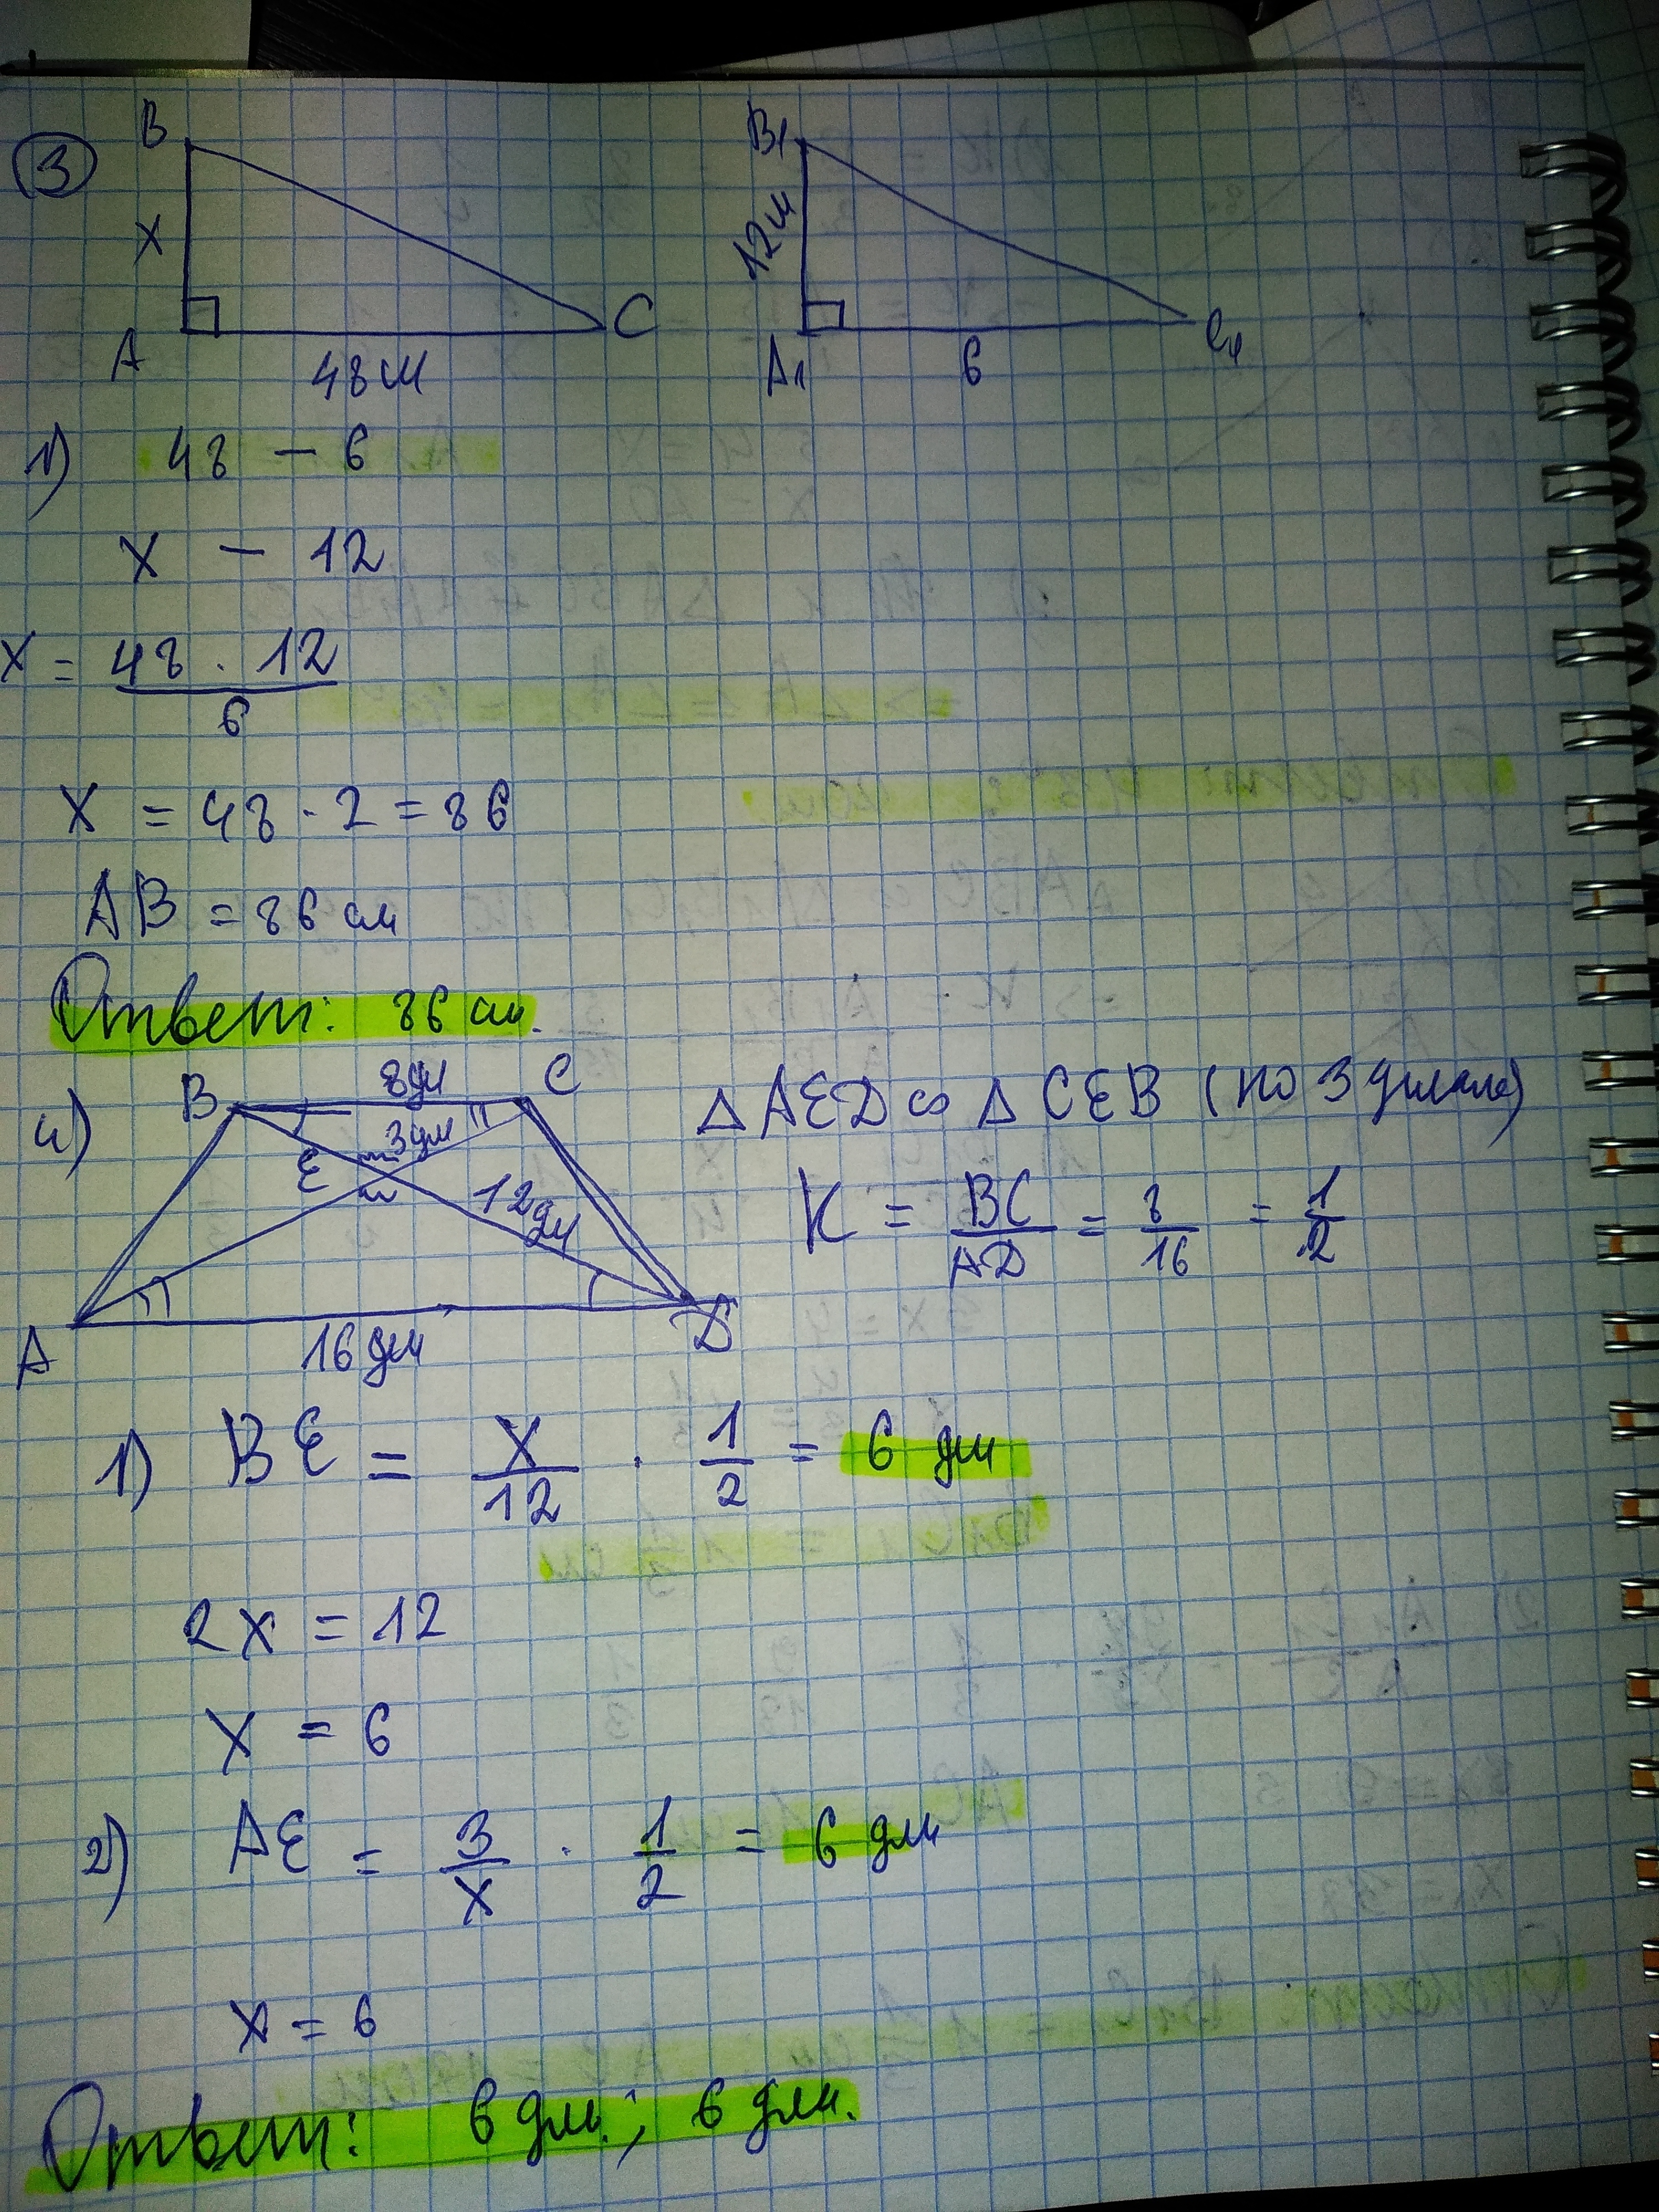 3
B
B1
X
12м
A
C
A1
C1
48м
6
1) 48 – 6
X – 12
X = 48 · 12 / 6
X = 48 · 2 = 86
AB = 86 см
Ответ: 86 см.
4)
B 8дм C
E 3дм
12дм
A 16дм D
△ AED ∾ △ CEB (по 3 углам)
K = BC / AD = 8 / 16 = 1 / 2
1) BE = X / 12 · 1 / 2 = 6 дм
2x = 12
X = 6
2) AE = 3 / X · 1 / 2 = 6 дм
x = 6
Ответ: 6 дм.; 6 дм.